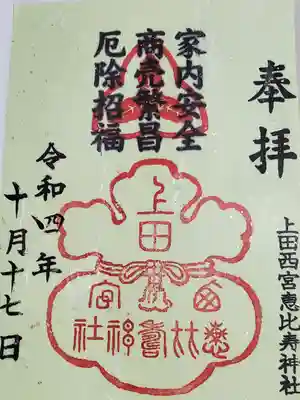 奉拝
上田西宮恵比寿神社
家内安全
商売繁昌
厄除招福
上田
西宮
恵比寿
神社
令和四年
十月十七日